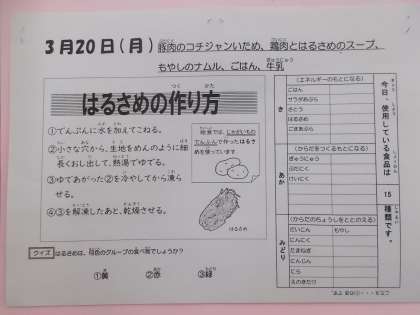 3月20日(月) 豚肉のコチジャンいため、鶏肉とはるさめのスープ、
もやしのナムル、ごはん、牛乳
はるさめの作り方
①でんぷんに水を加えてこねる。
②小さな穴から、生地をめんのように細
長くおし出して、熱湯でゆでる。
③ゆであがった②を冷やしてから凍ら
せる。
④③を解凍したあと、乾燥させる。
給食では、じゃがいもの
でんぷんで作ったはるさ
めを使っています
はるさめ
クイズ はるさめは、何色のグループの食べ物でしょうか?
①黄 ②赤 ③緑
今日、使用している食品は
15
種類です。
き
(エネルギーのもとになる)
ごはん
サラダあぶら
さとう
はるさめ
ごまあぶら
あか
(からだをつくるもとになる)
ぎゅうにゅう
ぶたにく
けいにく
みどり
(からだのちょうしをととのえる)
だいこん もやし
にんにく
たまねぎ
にんじん
にら
えのきたけ